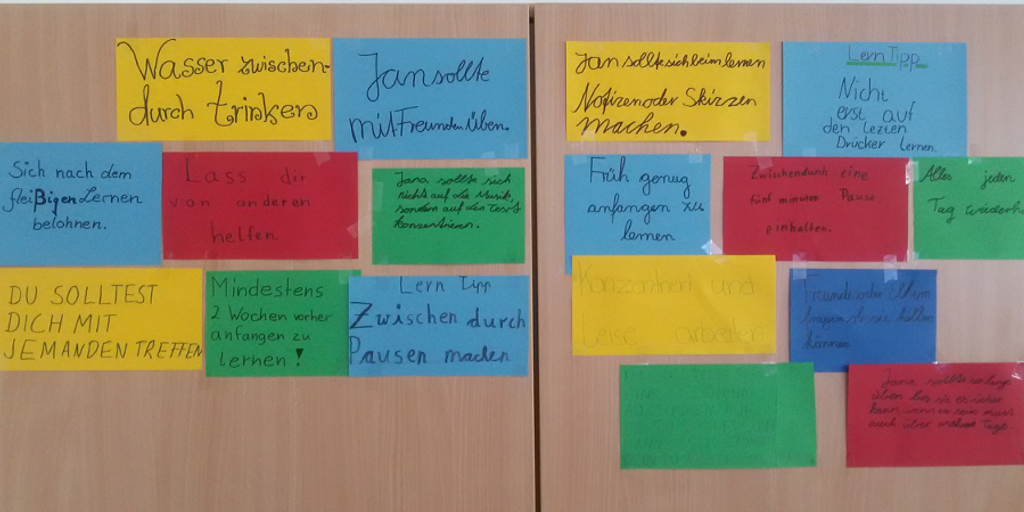 Wasser zwischen-
durch trinken
Jan sollte
mit Freunden üben.
Sich nach dem
fleißigen Lernen
belohnen.
Lass dir
von anderen
helfen.
Jana sollte sich
nicht auf die Musik,
sondern auf den Text
konzentrieren.
DU SOLLTEST
DICH MIT
JEMANDEN TREFFEN
Mindestens
2 Wochen vorher
anfangen zu
lernen!
Lern Tipp
Zwischen durch
Pausen machen
Jan sollte sich beim lernen
Notizen oder Skizzen
machen.
Lern Tipp
Nicht
erst auf
den lezten
Drücker lernen.
Früh genug
anfangen zu
lernen
Zwischendurch eine
fünf minuten Pause
einhalten.
Alles jeden
Tag wiederh
Konzentriert und
Leise arbeiten
Freunde oder Eltern
fragen ob sie helfen
können
Jana sollte so lange
üben bis sie es sicher
kann wenn es sein muss
auch über mehrere Tage.